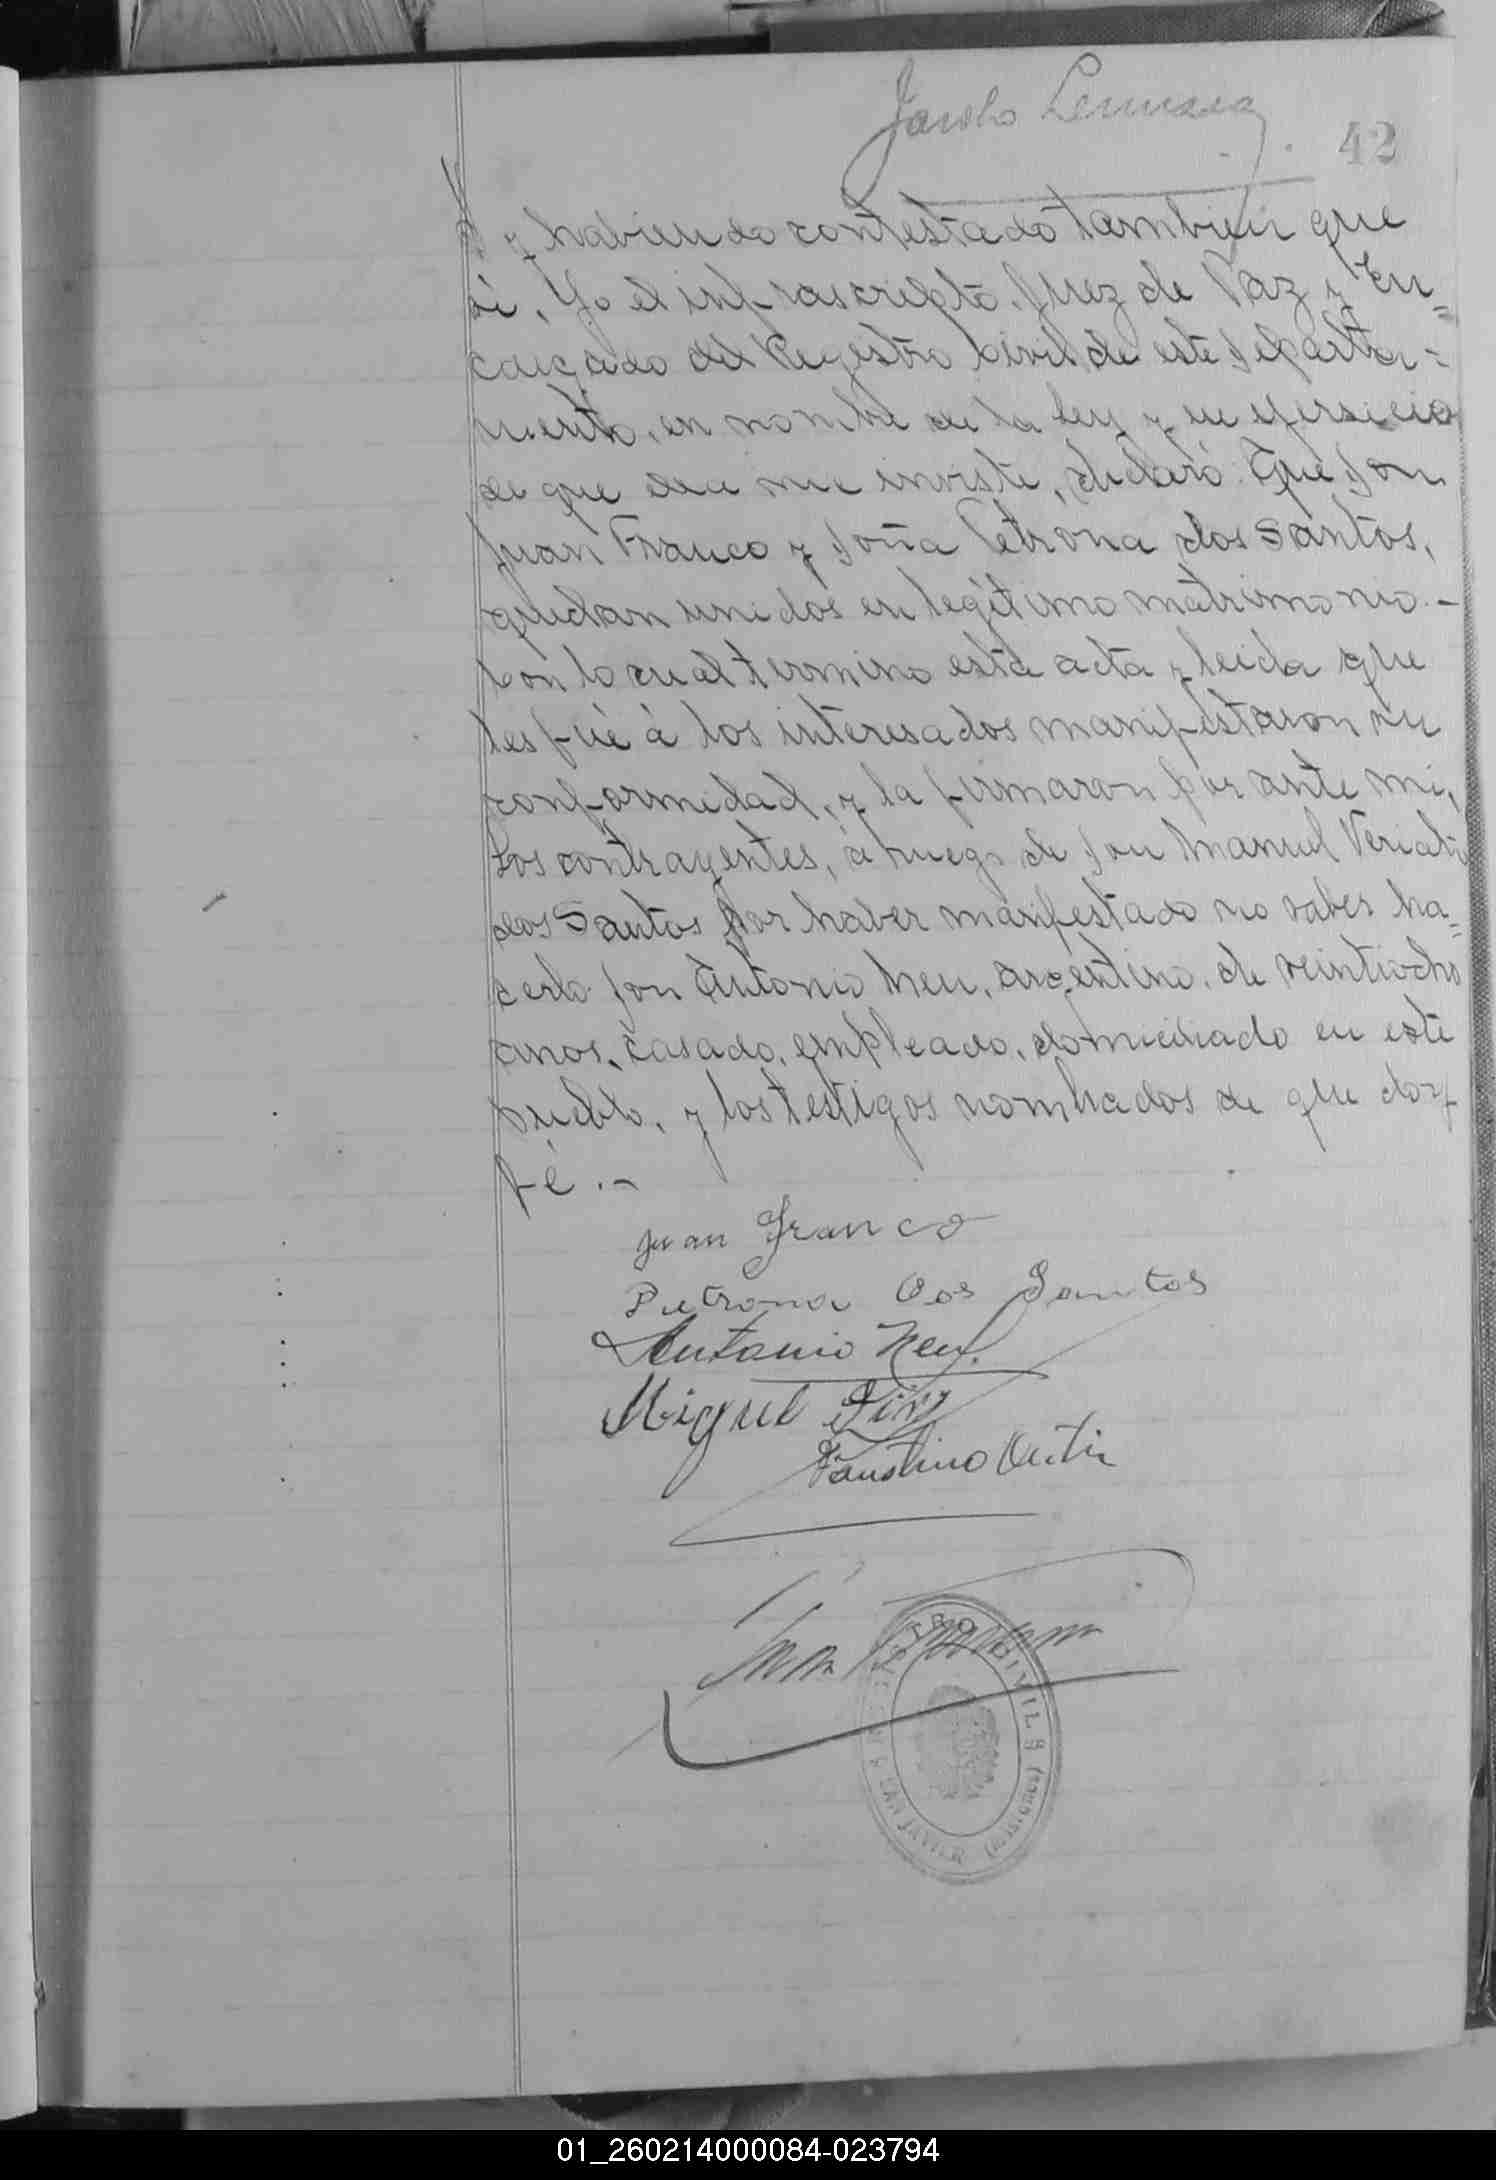 42
y habiendo contestado tambien que
si, Yo el infrascripto Juez de Paz y En=
cargado del Registro Civil de este Departa=
mento, en nombre de la ley y en ejersicio
de que ella me inviste, declaro: Que Don
Juan Franco y Doña Petrona dos Santos,
quedan unidos en legítimo matrimonio.-
Con lo cual termino esta acta y leida que
les fué á los interesados manifestaron su
conformidad, y la firmaron por ante mi,
los contrayentes, á ruego de Don Manuel
dos Santos por haber manifestado no saber ha=
cerlo Don Antonio Neu, argentino, de veintiocho
anos, casado, empleado, domiciliado en este
pueblo, y los testigos nombrados de que doy
fé.-
Juan Franco
Petrona Dos Santos
Antonio Neu.
Miguel
Faustino
REGISTRO CIVIL
SAN JAVIER (Misiones)
01_260214000084-023794